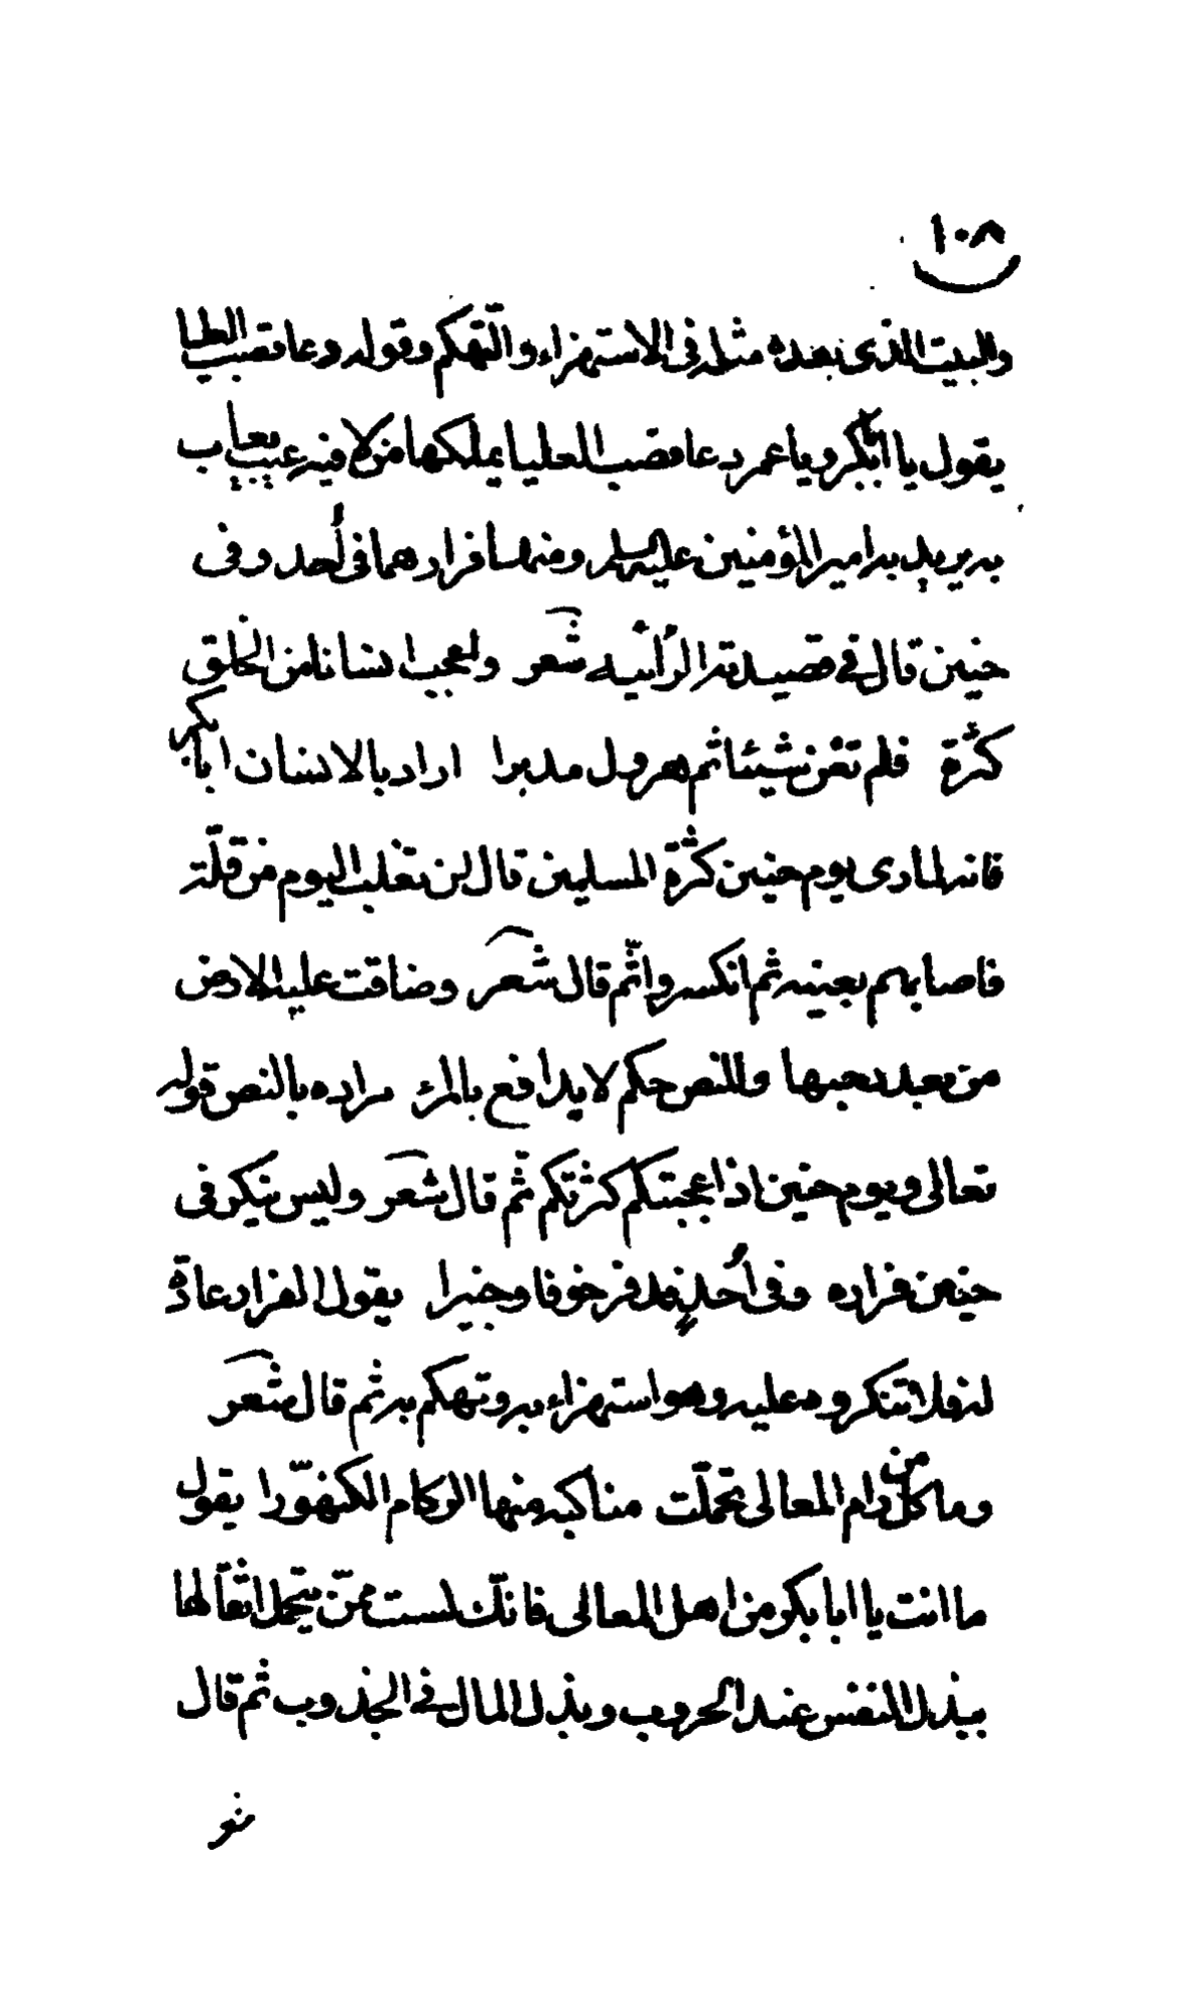 ١٠٨
والبيت الذى بعده مثله فى الاستهزاء والتّهكم وقوله دعا قصب العليا
يقول يا ابابكر ويا عمر دعا قصب العليا يملكها من لا فيه عيب يعاب
به يريد به امير المؤمنين عليه السلم ومنها فرارهما فى أُحد وفى
حنين قال فى قصيدته الرأئيه شعر واعجب انسانا من الخلق
كثرة فلم تغن شيئا ثم هرول مدبرا اراد بالانسان ابابكر
فانه لما راى يوم حنين كثرة المسلمين قال لن نغلب اليوم من قلّة
فاصابهم بعينه ثم انكسروا ثمّ قال شعر وضاقت عليه الارض
من بعد رحبها وللنص حكم لا يدافع بالمرء مراده بالنص قوله
تعالى ويوم حنين اذ اعجبتكم كثرتكم ثمّ قال شعر وليس بنكر فى
حنين فراره وفى أُحدٍ قد فر خوفا وخيبرا يقول الفرار عادة
له فلا تنكروه عليه وهو استهزاء به وتهكم به ثم قال شعر
وما كل من رام المعالى تحمّلت مناكبه منها الركام الكنهوّرا يقول
ما انت يا ابا بكر من اهل المعالى فانّك لست ممّن يتحمل اثقالها
ببذل النفس عند الحروب وبذل المال فى الجذوب ثم قال